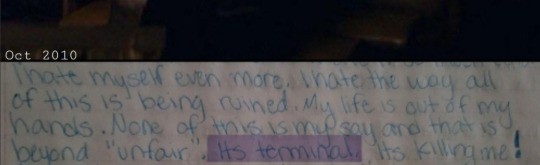 Oct 2010
I hate myself even more. I hate the way all
of this is being ruined. My life is out of my
hands. None of this is my say and that is
beyond "unfair". Its terminal. Its killing me!